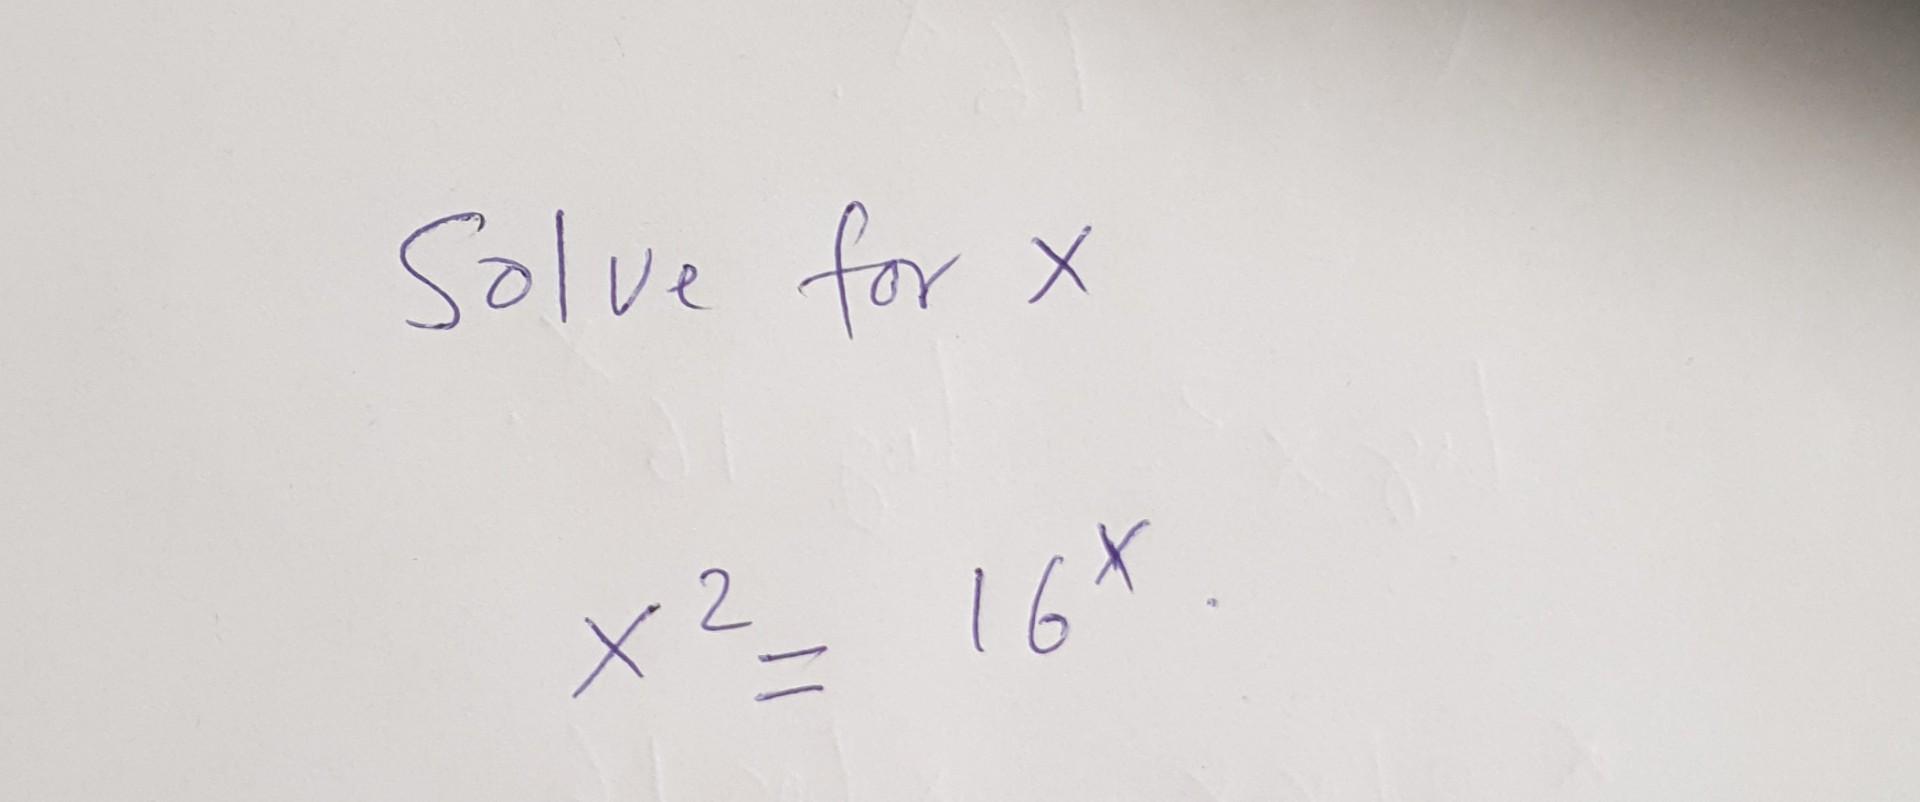 Solve for x
x² = 16ˣ.